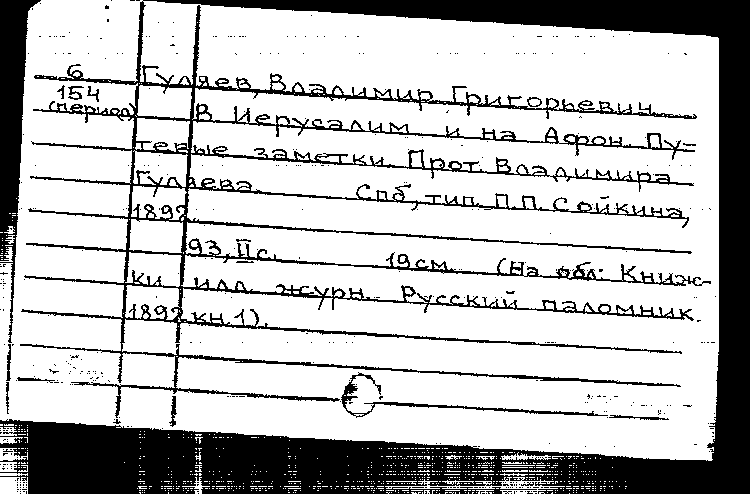 6 Гуляев, Владимир Григорьевич.
154
(период) В Иерусалим и на Афон. Пу=
тевые заметки Прот. Владимира
Гуляева. Спб, тип. П.П. Сойкина,
1892.
93, II с. 19 см. (На обл: Книж-
ки илл. журн. Русский паломник.
1892 кн. 1).